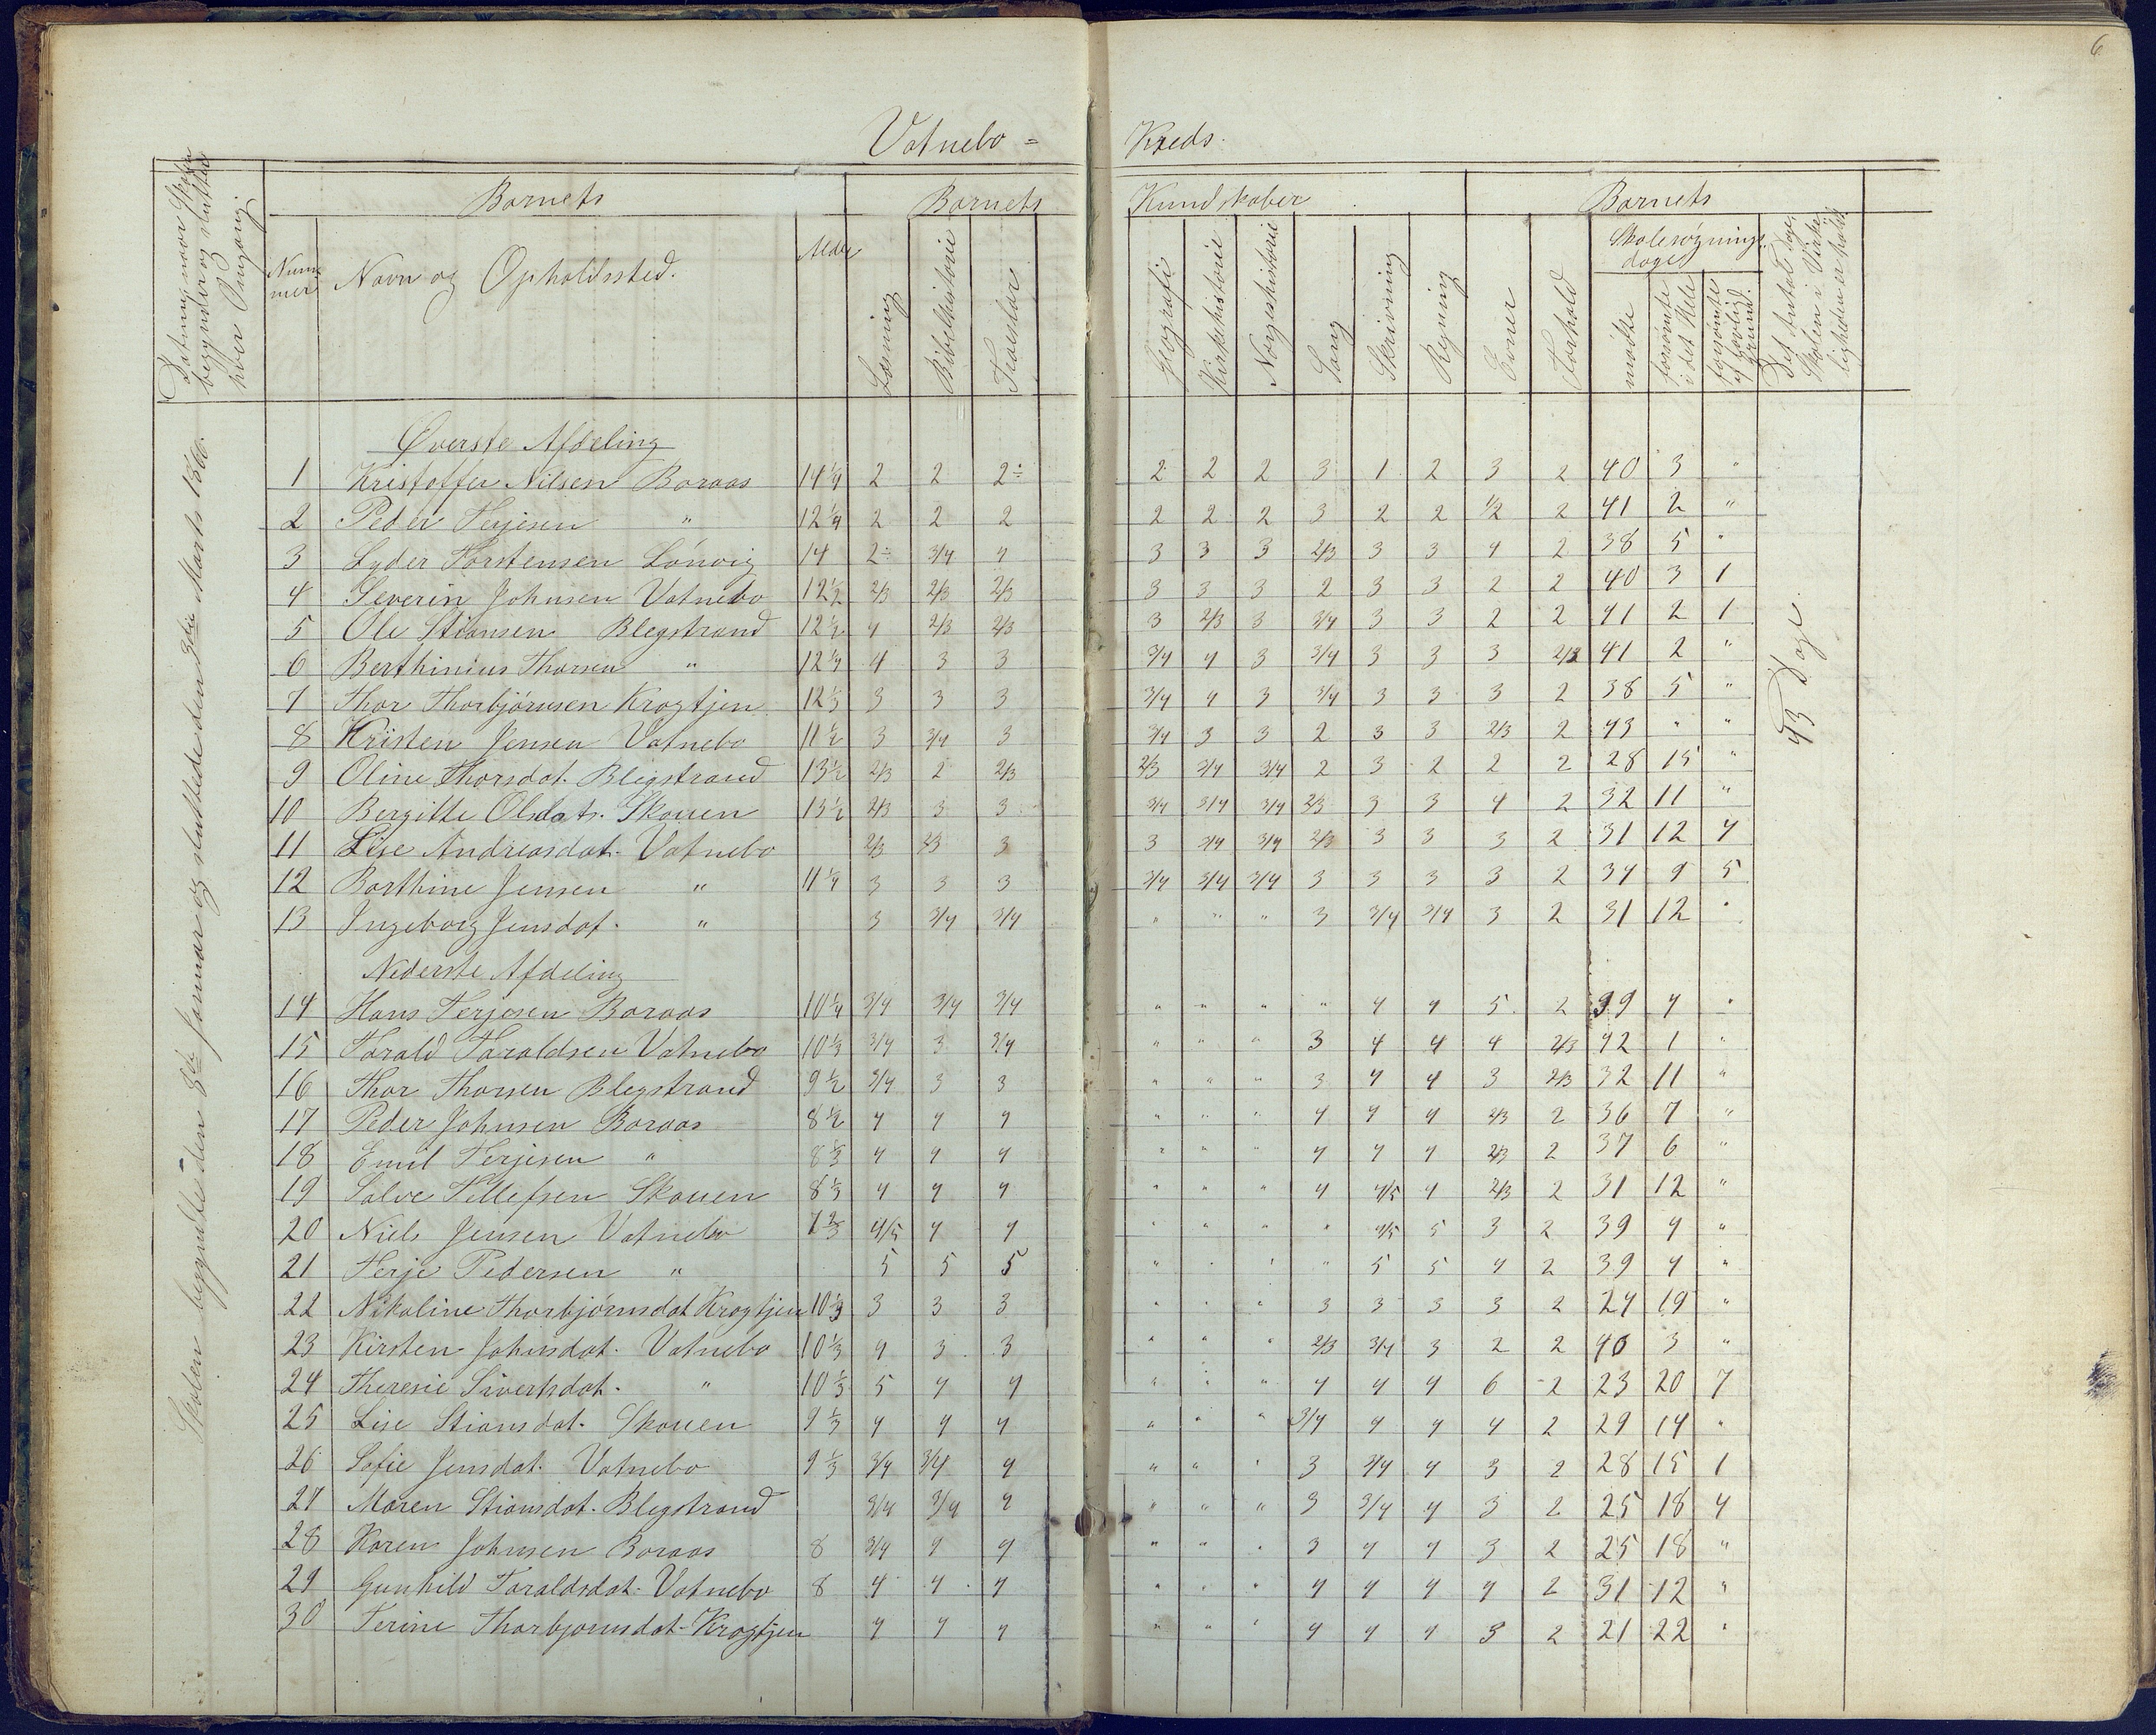 6
Vatnebo = Kreds.
Datum, naar Skolen begynder og slutter hver Omgang.
Barnets Barnets Kundskaber Barnets
Nummer Navn og Opholdssted. Alder Læsning Bibelhistorie Troeslær Geografi Kirkehistorie Norgeshistorie Sang Skrivning Regning Evner Forhold Skolesøgningsdage mødte forsømte i det Hele forsømte af lovlig Grund. Det Antal Dage, Skolen i Virkeligheden er holdt
Skolen begyndte den 8de Januar og sluttede den 3die Marts 1866.
43 Dage.
Øverste Afdeling
1 Kristoffer Nilsen Boraas 14 1/4 2 2 2÷ 2 2 2 3 1 2 3 2 40 3 "
2 Peder Terjesen " 12 1/4 2 2 2 2 2 2 3 2 2 1/2 2 41 2 "
3 Lyder Torstensen Lønvig 14 2÷ 3/4 4 3 3 3 2/3 3 3 4 2 38 5 "
4 Severin Johnsen Vatnebo 12 1/2 2/3 2/3 2/3 3 3 3 2 3 3 2 2 40 3 1
5 Ole Stiansen Blegstrand 12 1/2 4 2/3 2/3 3 2/3 3 3/4 3 3 2 2 41 2 1
6 Berthinius Thorsen " 12 1/4 4 3 3 3/4 4 3 3/4 3 3 3 2/3 41 2 "
7 Thor Thorbjørnsen Krogtjen 12 1/3 3 3 3 3/4 4 3 3/4 3 3 3 2 38 5 "
8 Kristen Jensen Vatnebo 11 1/2 3 3/4 3 3/4 3 3 2 3 3 2/3 2 43 " "
9 Oline Thorsdat. Blegstrand 13 1/2 2/3 2 2/3 2/3 3/4 3/4 2 3 2 2 2 28 15 "
10 Bergitte Olsdatr. Skouen 13 1/2 2/3 3 3 3/4 3/4 3/4 2/3 3 3 4 2 32 11 "
11 Lise Andreasdat. Vatnebo 2/3 2/3 3 3 3/4 3/4 2/3 3 3 3 2 31 12 4
12 Barthine Jensen " 11 1/4 3 3 3 3/4 3/4 3/4 3 3 3 3 2 34 9 5
13 Ingeborg Jensdat. " 3 3/4 3/4 " " " 3 3/4 3/4 3 2 31 12 "
Nederste Afdeling
14 Hans Terjesen Boraas 10 1/4 3/4 3/4 3/4 " " " " 4 4 5 2 39 4 "
15 Tarald Taraldsen Vatnebo 10 1/3 3/4 3 3/4 " " " 3 4 4 4 2/3 42 1 "
16 Thor Thorsen Blegstrand 9 1/2 3/4 3 3 " " " 3 4 4 3 2/3 32 11 "
17 Peder Johnsen Boraas 8 1/2 4 4 4 " " " 4 4 4 2/3 2 36 7 "
18 Emil Terjesen " 8 1/3 4 4 4 " " " 4 4 4 2/3 2 37 6 "
19 Salve Tellefsen Skouen 8 1/3 4 4 4 " " " 4 4/5 4 2/3 2 31 12 "
20 Niels Jensen Vatnebo 7 2/3 4/5 4 4 " " " " 4/5 5 3 2 39 4 "
21 Terje Pedersen " 5 5 5 " " " " 5 5 4 2 39 4 "
22 Nikoline Thorbjørnsdat Krogtjen 10 1/3 3 3 3 " " " 3 3 3 3 2 24 19 "
23 Kirsten Johnsdat. Vatnebo 10 1/3 4 3 3 " " " 2/3 3/4 3 2 2 40 3 "
24 Theresie Sivertsdat. " 10 1/3 5 4 4 " " " 4 4 4 6 2 23 20 7
25 Lise Stiansdat. Skouen 9 1/3 4 4 4 " " " 3/4 4 4 4 2 29 14 "
26 Sofie Jensdat. Vatnebo 9 1/3 3/4 3/4 4 " " " 3 3/4 4 3 2 28 15 1
27 Maren Stiansdat. Blegstrand 3/4 3/4 4 " " " 3 3/4 4 3 2 25 18 4
28 Karen Johnsen Boraas 8 3/4 4 4 " " " 3 4 4 3 2 25 18 "
29 Gunhild Taraldsdat. Vatnebo 8 4 4 4 " " " 4 4 4 4 2 31 12 "
30 Terine Thorbjornsdat. Krogtjen 4 4 4 " " " 4 4 4 3 2 21 22 "